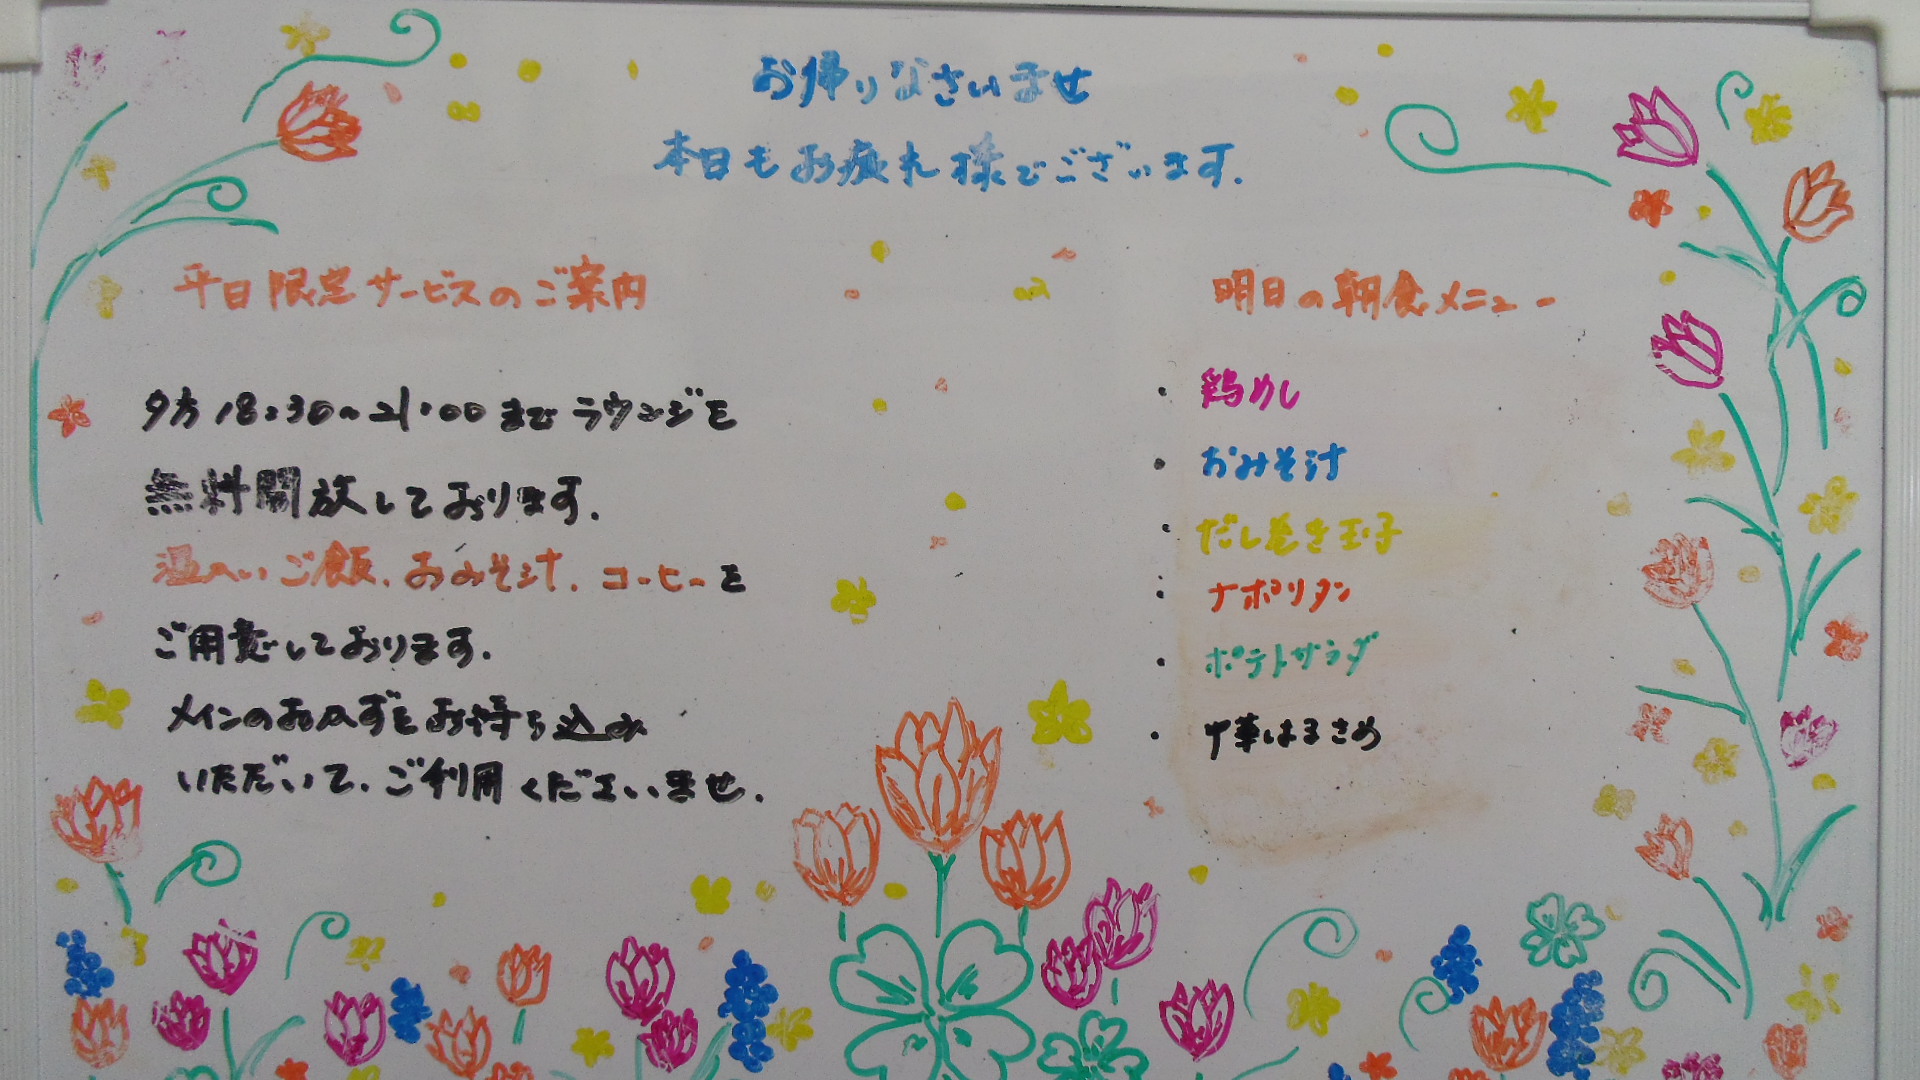 お帰りなさいませ
本日もお疲れ様でございます.
平日限定サービスのご案内
夕方18:30~21:00までラウンジを
無料開放しております.
温かいご飯.おみそ汁.コーヒーを
ご用意しております.
メインのおかずをお持ち込み
いただいて.ご利用くださいませ.
明日の朝食メニュー
・鶏めし
・おみそ汁
・だし巻き玉子
・ナポリタン
・ポテトサラダ
・中華はるさめ